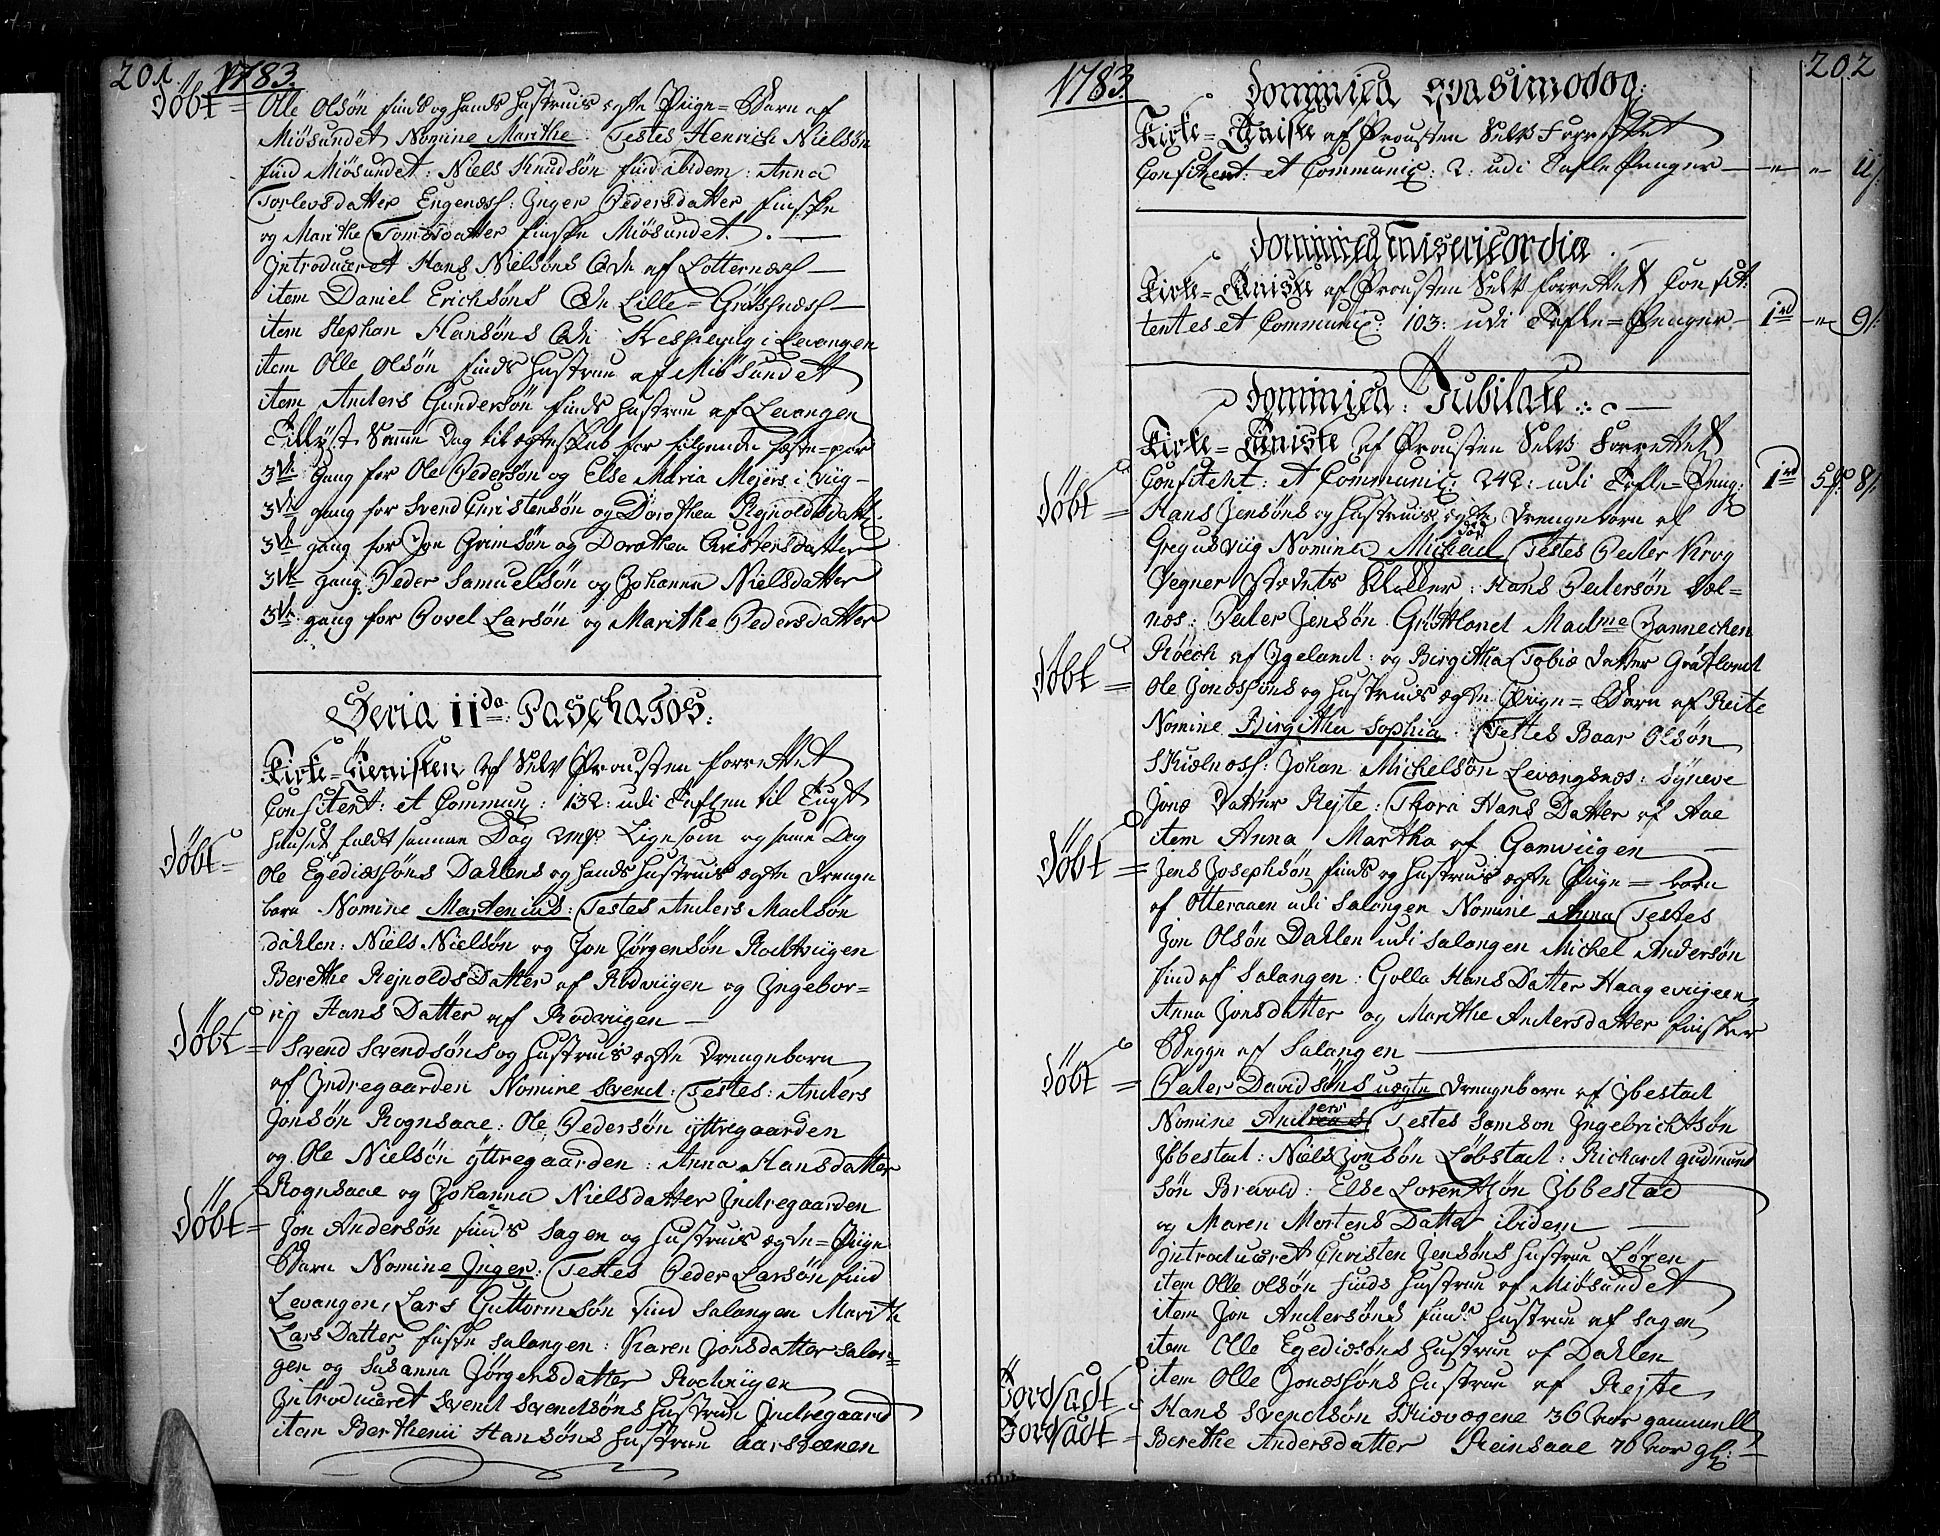 201 1783.
døbt = Olle Olsøn finds og hands hustruis egte Piige = Barn af
Miøsundet Nomine Marithe. Testes Henrich Nielsøn
find Miøsundet: Niels Knudsøn find ibidem: Anna
Torlevsdatter Engenæss: Inger Pedersdatter finske
og Marithe Tomesdatter finske Miøsundet.
Introduceret Hans Nielsøns Qde af Lotternæss
item Daniel Erichsøns Qde Lille = Gratsnæss
item Stephan Hansøns Qde i Levangen
item Olle Olsøn finds hustrue af Miøsundet
item Anders Gundersøn finds hustrue af Levangen
Tillyst Samme Dag til egteskab for følgende fæste = par
3de Gang for Ole Pedersøn og Else Maria Mejers i Viig
3de gang for Svend Christensøn og Dorothea Rejnoldsdatt:
3de gang for Jon Grimsøn og Dorothea Christensdatter
3de gang: Peder Samuelsøn og Johanna Nielsdatter
3de gang for Povel Larsøn og Marithe Pedersdatter
Feria IIda Paschatos:
Kirke = Tienisten af Selv Prousten forrettet
Confitent: et Commun: 132: udi Tuflen til Tugt
huset faldt samme Dag 2 mk Ligesom og same Dag
døbt = Ole Egediæsøns Dahlens og hands hustruis egte drenge
barn Nomine Martenius: Testes Anders Madsøn
dahlen: Niels Nielsøn og Jon Jørgensøn Rodtviigen
Berethe Rejnolds Datter af Rodviigen og Ingebor=
rig Hans Datter af Rodviigen
døbt = Svend Svendsøns og hustruis egte drengebarn
af Indregaarden Nomine Svend: Testes: Anders
Jonsøn Rognsaae: Ole Pedersøn yttregaarden
og Ole Nielsøn yttregaarden: Anna Hansdatter
Rognsaae og Johanna Nielsdatter Indregaarden
døbt = Jon Andersøn finds Sagen og hustruis egte = Piige
Barn Nomine Inger: Testes Peder Larsøn find
Levangen, Lars Guttormsøn find Salangen Marith
Lars Datter finske Salangen: Karen Jonsdatter Salan=
gen og Susanna Jørgensdatter Rodviigen
Introduceret Svend Svendsøns hustrue Indregaard
item Berthenii Hansøns hustrue Aarsteenen
1783 202
Dominica Qvasimodog:
Kirke = Tienisten af Prousten Selv Forrettet
Confitent: et Communic: 2: udi Tafle Penger — 11
Dominica Misericordia
Kirke = Tieniste af Prousten Selv forrettet Confit:
tentes et Communic: 103: udi Tafle = Penger 1rd 9
Dominica: Jubilate
Kirke = Tieniste af Prousten Selv Forrettet
Confitent: et Communic: 242: udi Tafle = Peng: 1rd 5 8
døbt = Hans Jensøns og hustruis egte drengebarn af
Gregusviig Nomine Michael Testes Peder Krog
Vegner Stædets Skoller: Hans Pedersøn Sæl=
næs: Peder Jensøn Gröttland Madme Jannechen
Röech af Igeland: og Birgitha Tobiæ datter Grötland
døbt = Ole Jonæsøns og hustruis egte Piige = Barn af Reite
Nomine Birgitha Sophia. Testes Baar Olsøn
Skiælnæss: Johan Michelsøn Levangsnæs: Synneve
Jonæ datter Rejte: Thora Hans Datter af Aae
item Anna Martha af Gamviigen
døbt = Jens Josephsøn finds og hustruis egte Piige = barn
af Otteraaen udi Salangen Nomine Anna Testes
Jon Olsøn Dahlen udi Salangen Michel Andersøn
find af Salangen: Golla Hans Datter Haageviigen
Anna Jonsdatter og Marithe Andersdatter finsker
Begge af Salangen
døbt = Peder Davidsøns uegte drengebarn af Ibestad
Nomine Andreas ers Testes Samson Ingebrichtsøn
Ibbestad: Niels Jonsøn Løbstad: Richard gudmund
søn Brevold: Else Lorentzøn Ibbestad
og Maren Mortens Datter ibidem
Introduceret Christen Jensøns hustrue Løxen
item Olle Olsøn finds hustrue af Miøsundet
item Jon Andersøns find: hustrue af Sagen
item Olle Egediæsøns hustrue af Dahlen
item Olle Jonæssøns hustrue af Rejte
Jordfædt = Hans Svendsøn Skiævogene 36 Aar gammell
Jordfædt = Berethe Andersdatter Reinsaae 70 Aar gl: